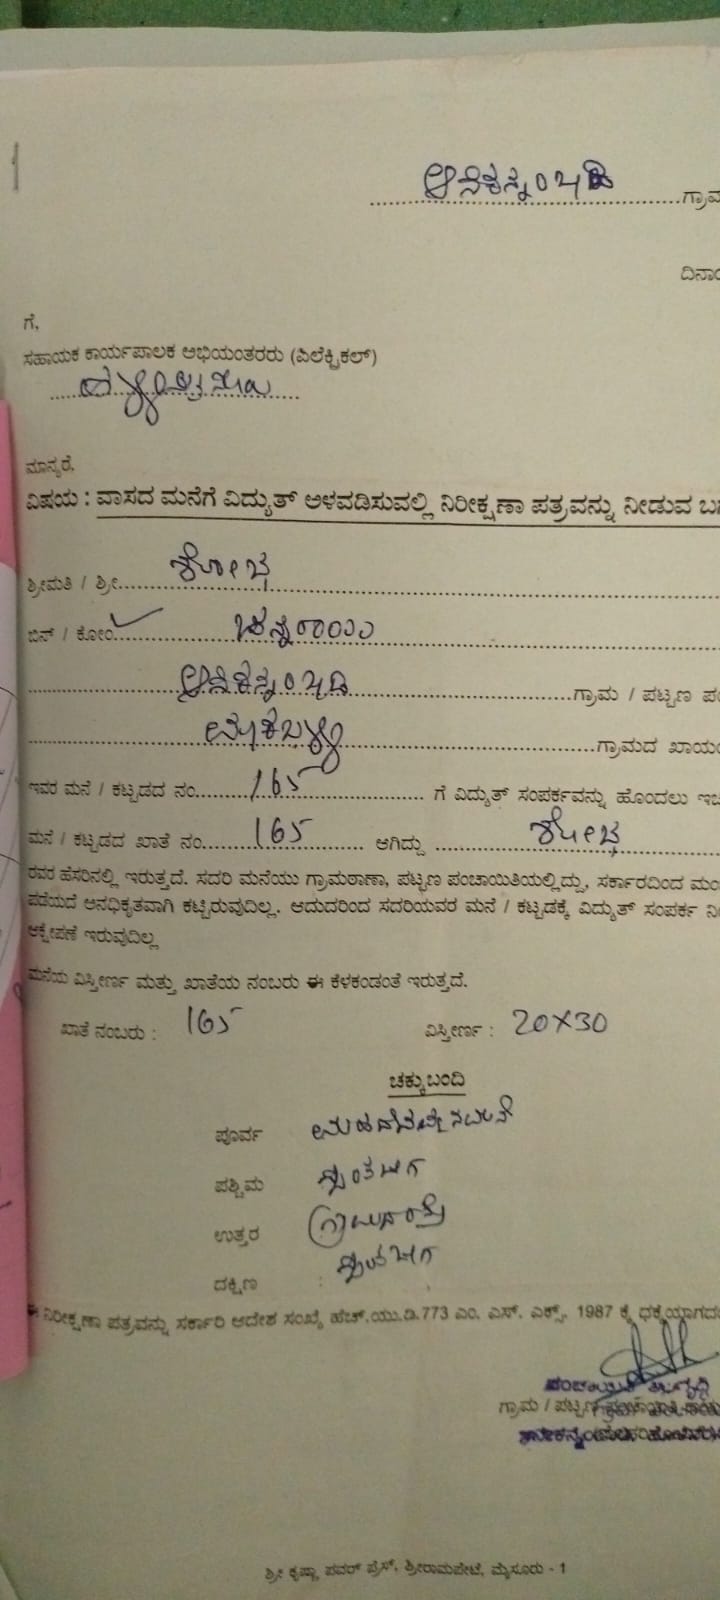 1
ಆನೆಕನ್ನಂಬಾಡಿ ಗ್ರಾಮ
ದಿನಾಂ
ಗೆ,
ಸಹಾಯಕ ಕಾರ್ಯಪಾಲಕ ಅಭಿಯಂತರರು (ಎಲೆಕ್ಟ್ರಿಕಲ್)
ಮಾನ್ಯರೆ,
ವಿಷಯ : ವಾಸದ ಮನೆಗೆ ವಿದ್ಯುತ್ ಅಳವಡಿಸುವಲ್ಲಿ ನಿರೀಕ್ಷಣಾ ಪತ್ರವನ್ನು ನೀಡುವ ಬ
ಶ್ರೀಮತಿ / ಶ್ರೀ ಶೋಭ
ಬಿನ್ / ಕೋಂ
ಆನೆಕನ್ನಂಬಾಡಿ ಗ್ರಾಮ / ಪಟ್ಟಣ ಪಂ
ಗ್ರಾಮದ ಖಾಯಂ
ಇವರ ಮನೆ / ಕಟ್ಟಡದ ನಂ. 165 ಗೆ ವಿದ್ಯುತ್ ಸಂಪರ್ಕವನ್ನು ಹೊಂದಲು ಇಚ
ಮನೆ / ಕಟ್ಟಡದ ಖಾತೆ ನಂ. 165 ಆಗಿದ್ದು ಶೋಭ
ರವರ ಹೆಸರಿನಲ್ಲಿ ಇರುತ್ತದೆ. ಸದರಿ ಮನೆಯು ಗ್ರಾಮಠಾಣಾ, ಪಟ್ಟಣ ಪಂಚಾಯಿತಿಯಲ್ಲಿದ್ದು, ಸರ್ಕಾರದಿಂದ ಮಂ
ಪಡೆಯದೆ ಅನಧಿಕೃತವಾಗಿ ಕಟ್ಟಿರುವುದಿಲ್ಲ. ಆದುದರಿಂದ ಸದರಿಯವರ ಮನೆ / ಕಟ್ಟಡಕ್ಕೆ ವಿದ್ಯುತ್ ಸಂಪರ್ಕ ನೀ
ಆಕ್ಷೇಪಣೆ ಇರುವುದಿಲ್ಲ
ಮನೆಯ ವಿಸ್ತೀರ್ಣ ಮತ್ತು ಖಾತೆಯ ನಂಬರು ಈ ಕೆಳಕಂಡಂತೆ ಇರುತ್ತದೆ.
ಖಾತೆ ನಂಬರು : 165 ವಿಸ್ತೀರ್ಣ : 20X30
ಚಕ್ಕುಬಂದಿ
ಪೂರ್ವ
ಪಶ್ಚಿಮ ಸ್ವಂತ ಜಾಗ
ಉತ್ತರ
ದಕ್ಷಿಣ :
ಈ ನಿರೀಕ್ಷಣಾ ಪತ್ರವನ್ನು ಸರ್ಕಾರಿ ಆದೇಶ ಸಂಖ್ಯೆ ಹೆಚ್.ಯು.ಡಿ.773 ಎಂ. ಎಸ್. ಎಕ್ಸ್. 1987 ಕ್ಕೆ ಧಕ್ಕೆಯಾಗದಂ
ಗ್ರಾಮ / ಪಟ್ಟಣ
ಶ್ರೀ ಕೃಷ್ಣಾ ಪವರ್ ಪ್ರೆಸ್, ಶ್ರೀರಾಮಪೇಟೆ, ಮೈಸೂರು - 1